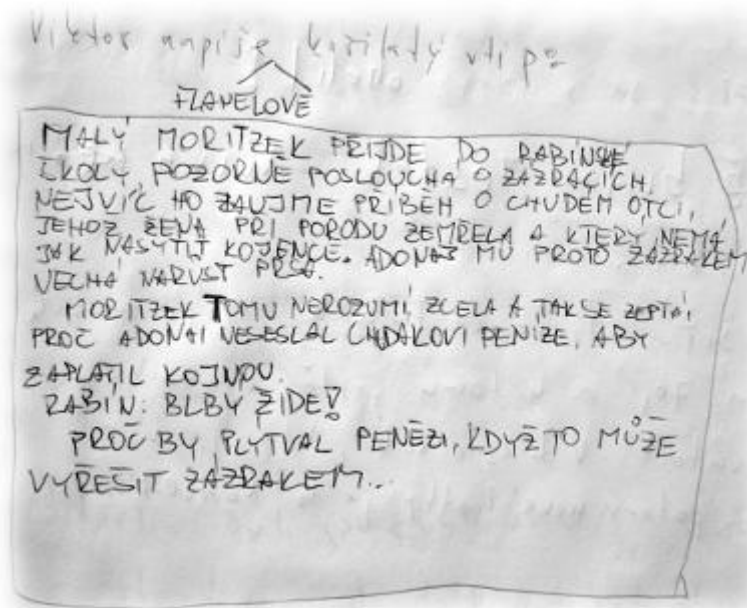 Viktor napíše košilatý vtip:
FLANELOVĚ
MALÝ MORITZEK PŘIJDE DO RABÍNSKÉ
ŠKOLY POZORNĚ POSLOUCHA O ZÁZRACÍCH.
NEJVÍC HO ZAUJME PŘÍBĚH O CHUDÉM OTCI,
JEHOŽ ŽENA PŘI PORODU ZEMŘELA A KTERÝ NEMÁ
JAK NASYTIT KOJENCE. ADONAJ MU PROTO ZÁZRAKEM
NECHÁ NARŮST PRSA.
MORITZEK TOMU NEROZUMÍ ZCELA A TAK SE ZEPTÁ,
PROČ ADONAI NESESLAL CHUĎÁKOVI PENÍZE, ABY
ZAPLATIL KOJNOU.
RABÍN: BLBÝ ŽIDE!
PROČ BY PLÝTVAL PENĚZI, KDYŽ TO MŮŽE
VYŘEŠIT ZÁZRAKEM...